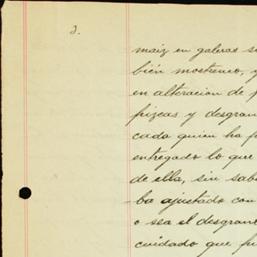 2.
maiz en galeras s
bién mostrenco, y
en alteracion de p
pizcas y desgran
cada quien ha p
entregado lo que
de ella, sin sab
ba ajustado con
o sea el desgran
cuidado que fu